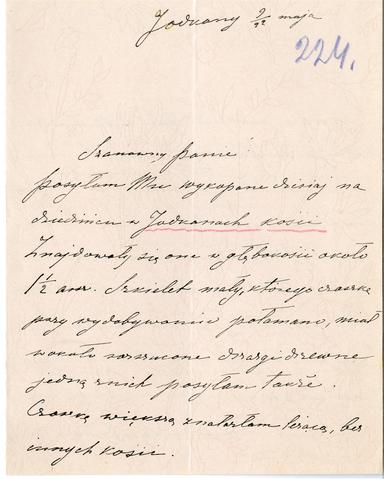 Jodkany 9/22 maja
224.
Szanowny Panie!
Posyłam Mu wykopane dzisiaj na
dziedzińcu w Jodkanach kości
Znajdowały się one w głębokości około
1 1/2 arsz. Szkielet mały, którego czaszkę
przy wydobywaniu połamano, miał
wokoło rozrzucone drzazgi drzewne
jedną z nich posyłam także.
Czaszkę większą znalazłam leżącą, bez
innych kości.